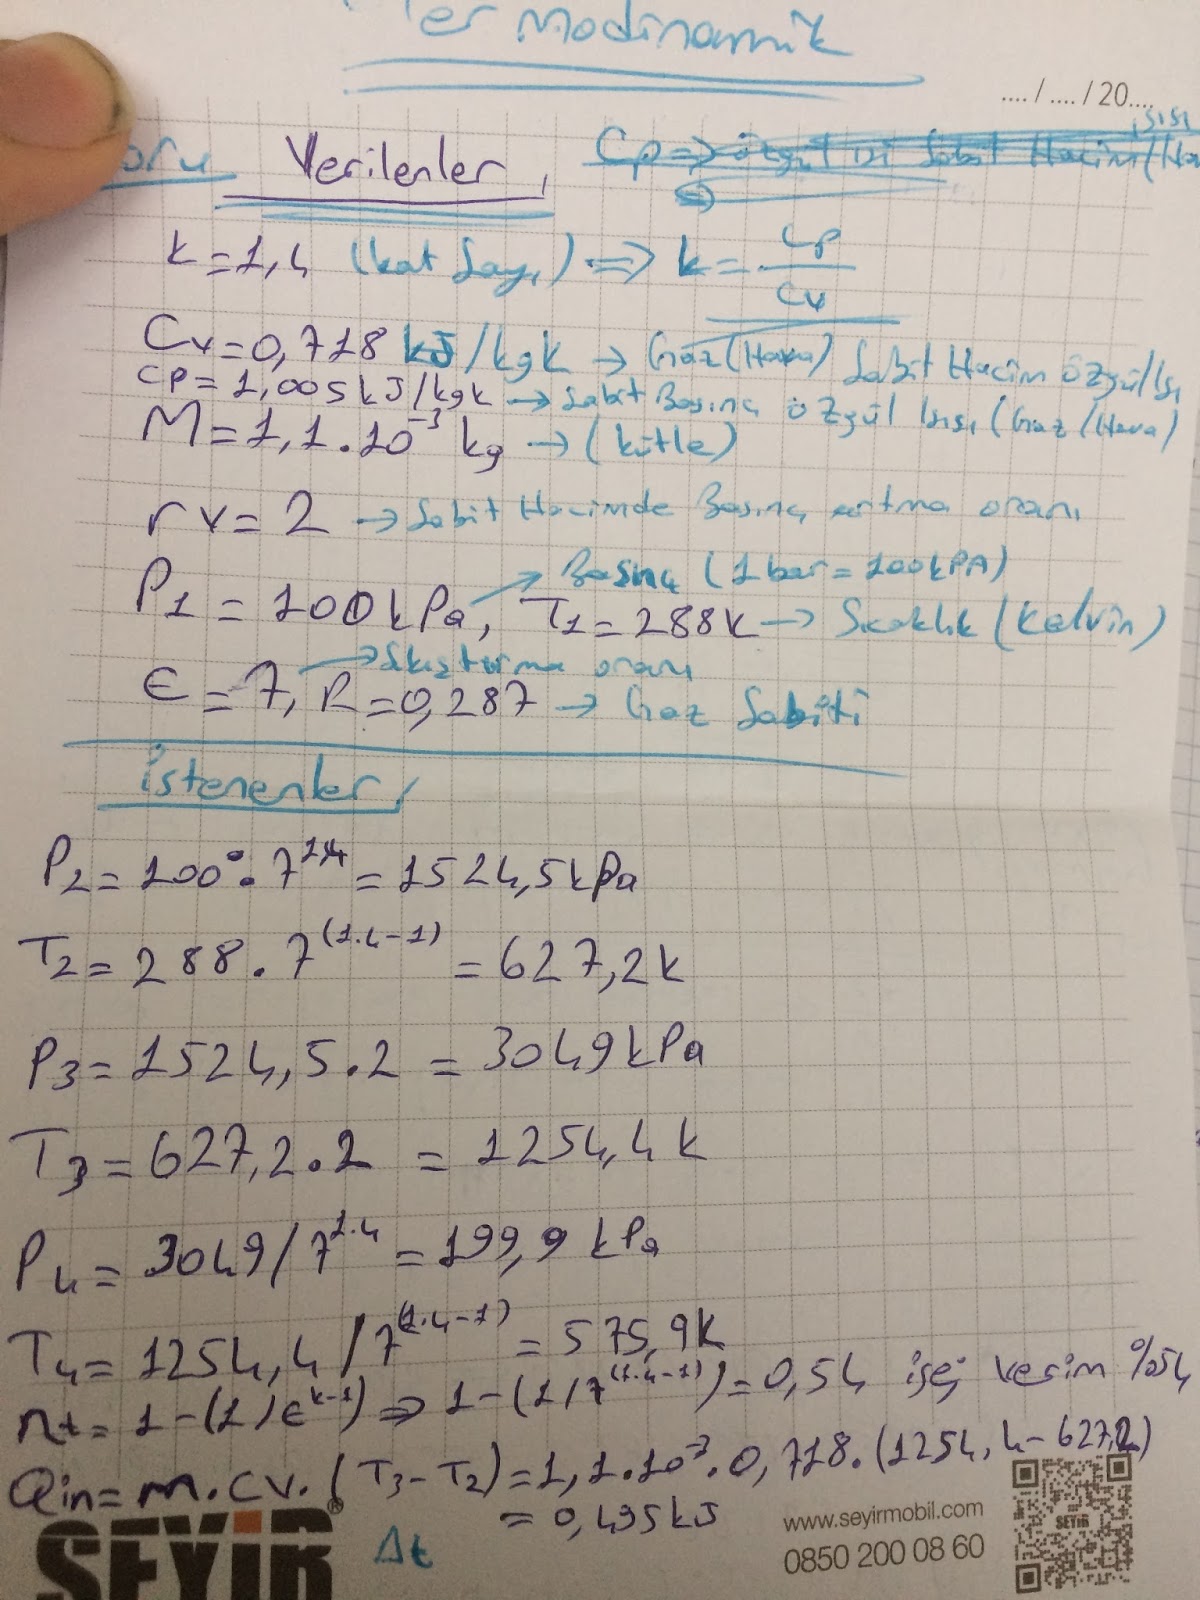 Termodinamik
.... / .... / 20....
Soru Verilenler,
k=1,4 (kat sayı) => k = Cp/Cv
Cv=0,718 kJ/kgK → Gaz (Hava) Sabit Hacim özgül Isı
Cp=1,005 kJ/kgK → Sabit Basınç özgül Isısı (Gaz/Hava)
M=1,1.10⁻³ kg → (kütle)
rv=2 → Sabit Hacimde Basınç artma oranı
P1=100kPa, → Basınç (1bar=100kPA) T1=288K → Sıcaklık (Kelvin)
ϵ=7, → Sıkıştırma oranı R=0,287 → Gaz Sabiti
istenenler,
P2=100.7^1.4=1524,5kPa
T2=288.7^(1.4-1)=627,2K
P3=1524,5.2=3049kPa
T3=627,2.2=1254,4K
P4=3049/7^1.4=199,9 kPa
T4=1254,4/7^(1.4-1)=575,9K
nt=1-(1/ϵ^k-1)=>1-(1/7^(1.4-1))=0,54 ise; verim %54
Qin=m.cv.(T3-T2)=1,1.10⁻³.0,718.(1254,4-627,2)
=0,495kJ
Δt
SEYİR®
www.seyirmobil.com
0850 200 08 60
SEYİR